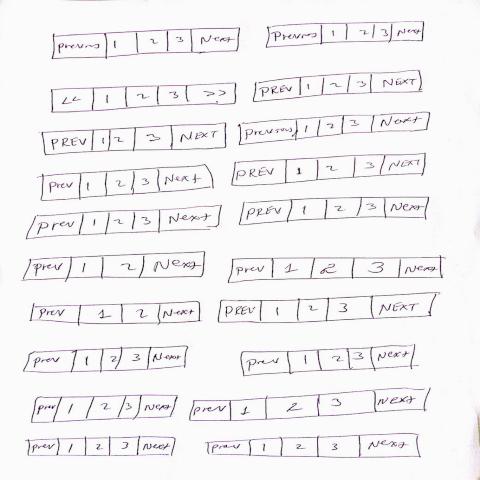 Previous 1 2 3 Next Previous 1 2 3 Next
<< 1 2 3 >> PREV 1 2 3 NEXT
PREV 1 2 3 NEXT Previous 1 2 3 Next
Prev 1 2 3 Next PREV 1 2 3 NEXT
Prev 1 2 3 Next PREV 1 2 3 Next
Prev 1 2 Next Prev 1 2 3 Next
Prev 1 2 Next PREV 1 2 3 NEXT
Prev 1 2 3 Next Prev 1 2 3 Next
Prev 1 2 3 Next Prev 1 2 3 Next
Prev 1 2 3 Next Prev 1 2 3 Next